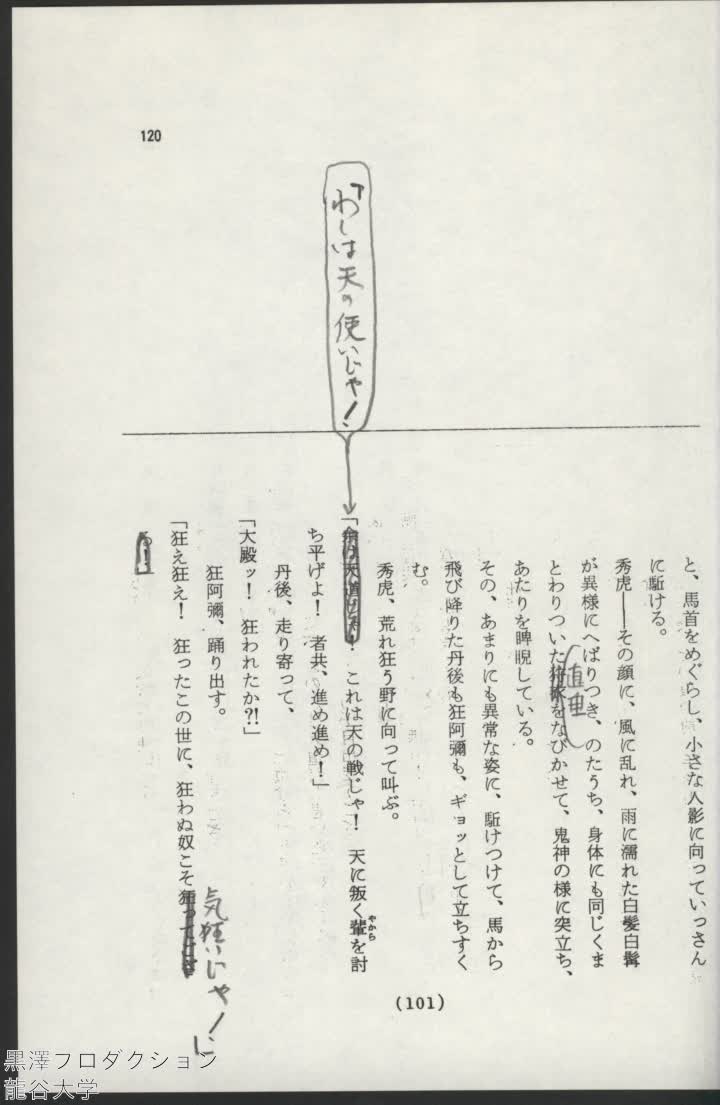 120
「わしは天の使いじゃ!
と、馬首をめぐらし、小さな人影に向っていっさん
に駈ける。
秀虎――その顔に、風に乱れ、雨に濡れた白髪白髯
が異様にへばりつき、のたうち、身体にも同じくま
とわりついた直垂をなびかせて、鬼神の様に突立ち、
あたりを睥睨している。
その、あまりにも異常な姿に、駈けつけて、馬から
飛び降りた丹後も狂阿彌も、ギョッとして立ちすく
む。
秀虎、荒れ狂う野に向って叫ぶ。
「 これは天の戦じゃ! 天に叛く輩を討
やから
ち平げよ! 者共、進め進め!」
丹後、走り寄って、
「大殿ッ! 狂われたか?!」
狂阿彌、踊り出す。
「狂え狂え! 狂ったこの世に、狂わぬ奴こそ
気狂いじゃ!
(101)
黒澤プロダクション
龍谷大学